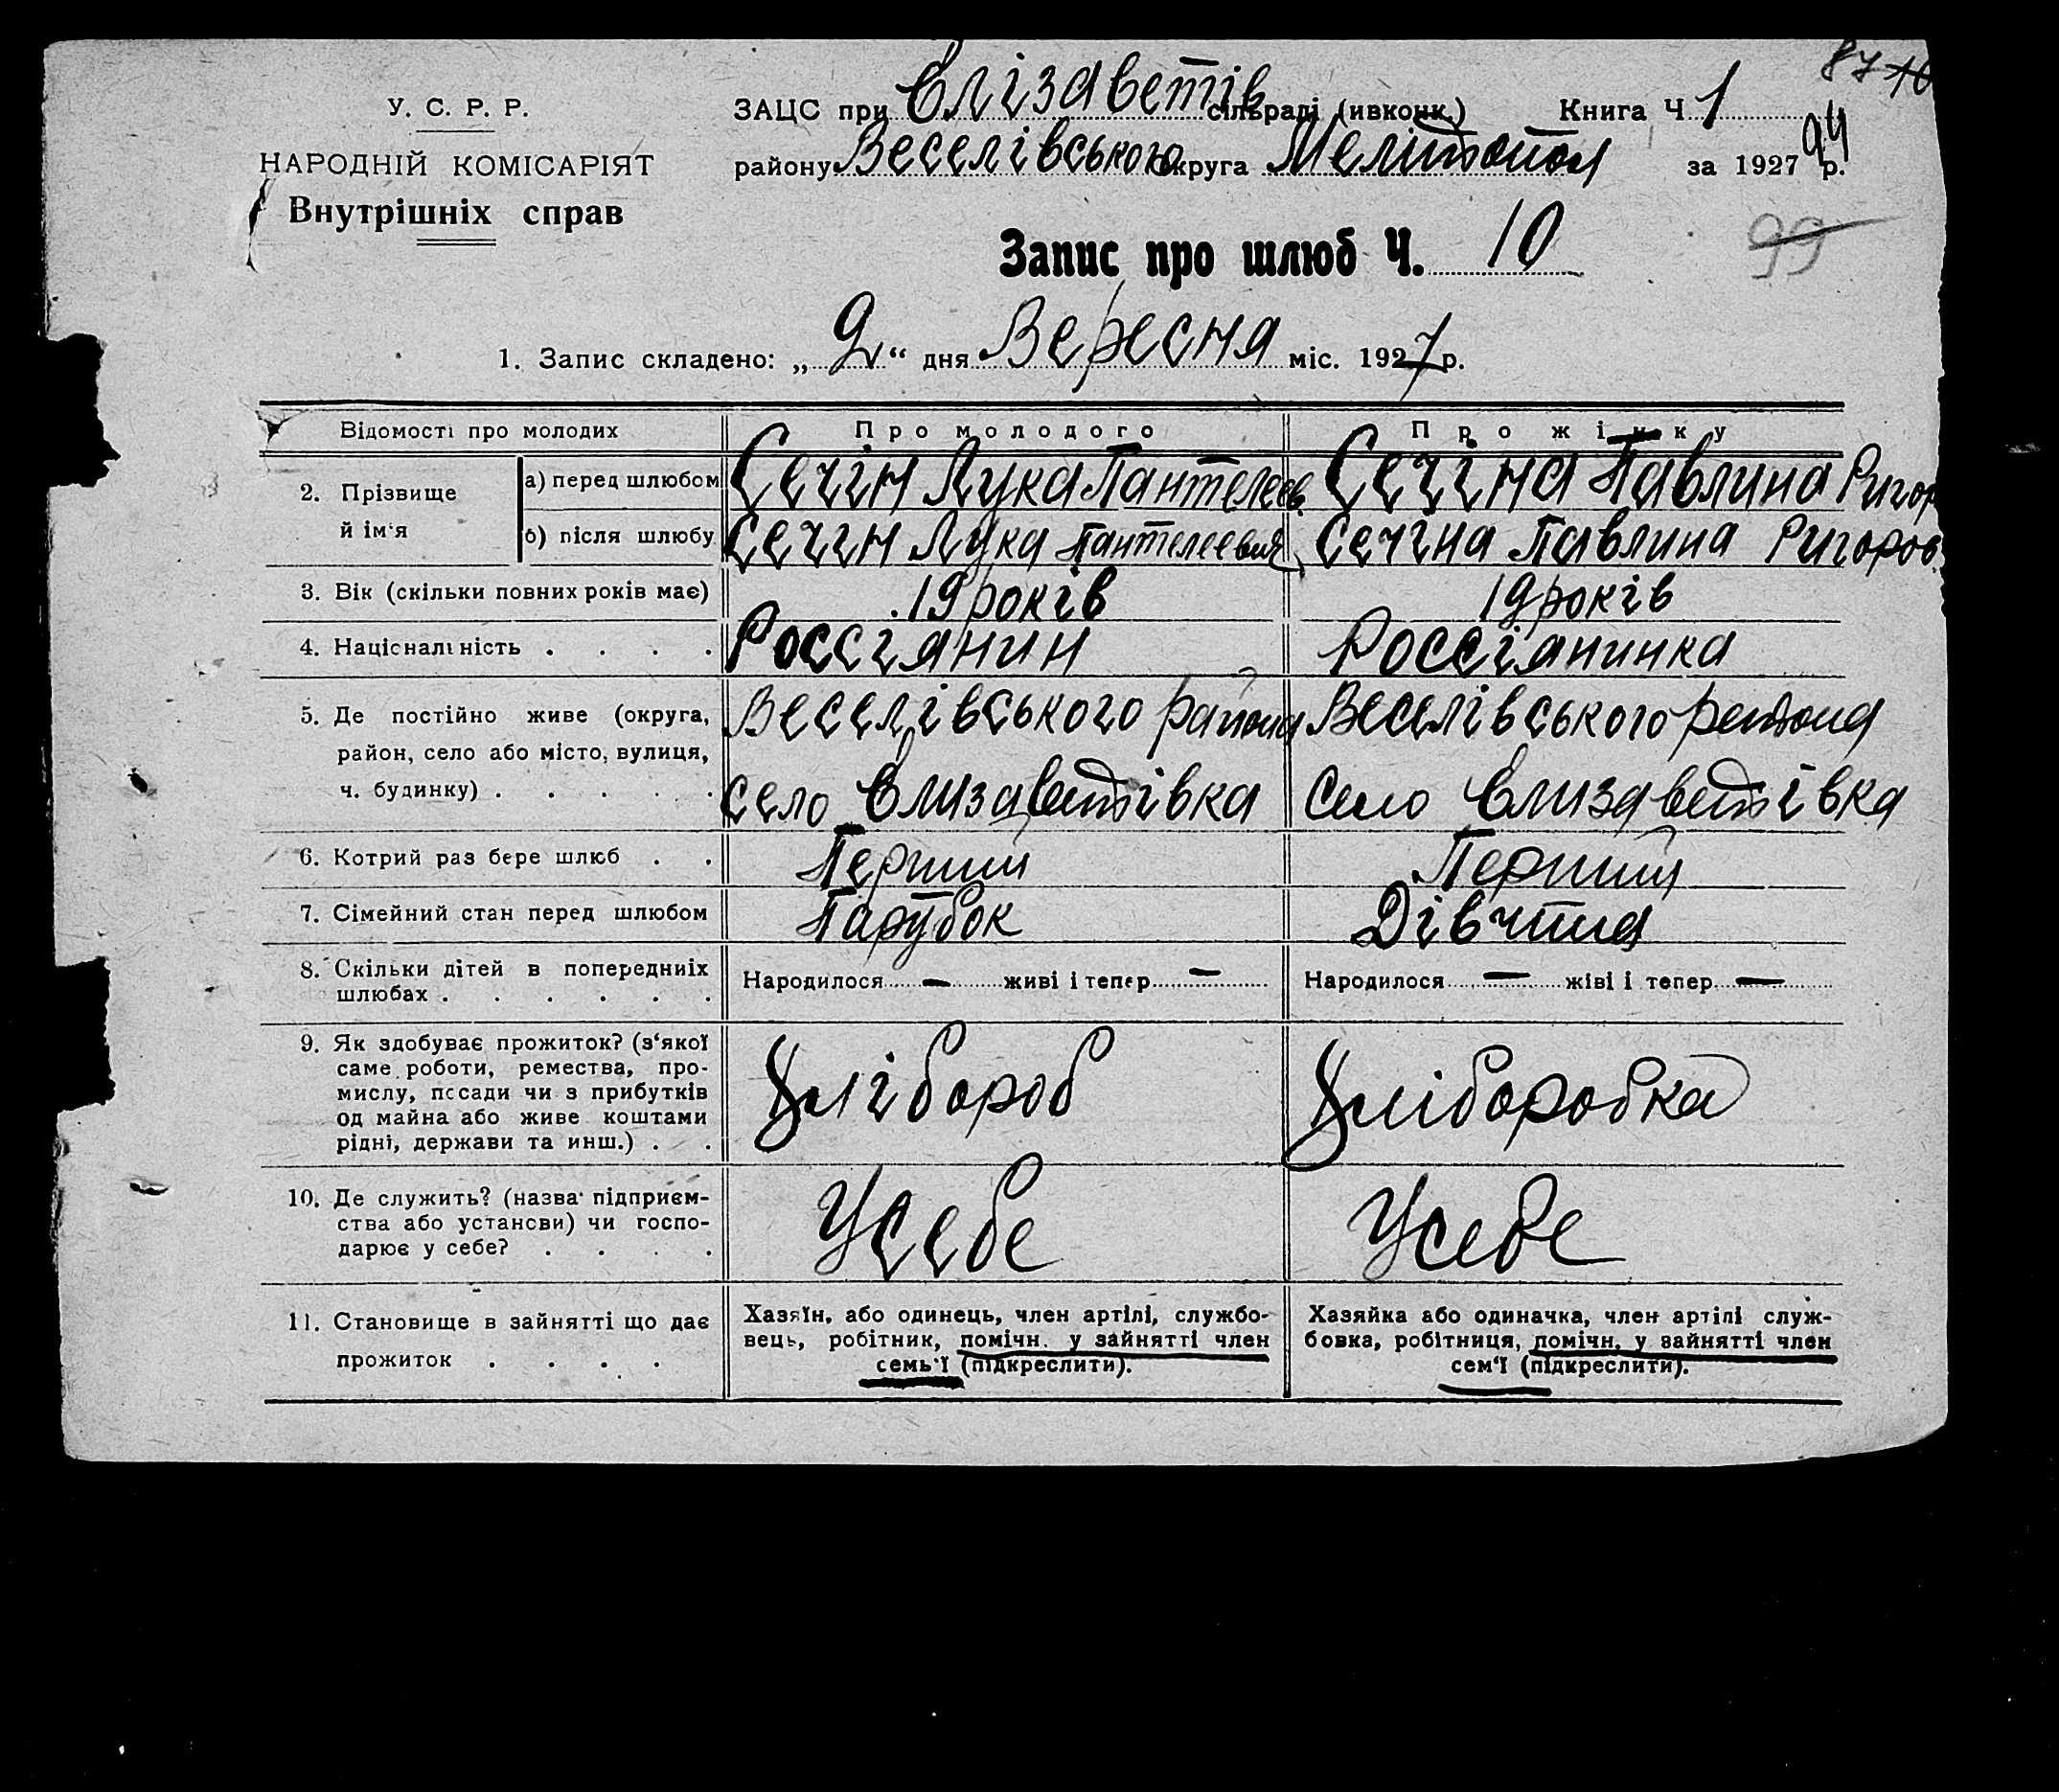 87
У. С. Р. Р. ЗАЦС при Єлізаветів сільраді (ивконк.) Книга Ч 1
НАРОДНІЙ КОМІСАРІЯТ району Веселівського округа Мелітопол за 1927 р. 94
Внутрішніх справ
Запис про шлюб Ч. 10 99
1. Запис складено: „ 2 “ дня Вересня міс. 1927 р.
Відомості про молодих Про молодого Про жінку
2. Прізвище й ім'я а) перед шлюбом Сечін Лука Пантелеев. Сечіна Павлина Ригор
б) після шлюбу Сечін Лука Пантелеевич Сечіна Павлина Ригоров.
3. Вік (скільки повних років має) 19 років 19 років
4. Національність . . . . Россіянин Россіянинка
5. Де постійно живе (округа, Веселівського района Веселівського района
район, село або місто, вулиця,
ч. будинку) . . . . . село Єлизаветівка село Єлизаветівка
6. Котрий раз бере шлюб . . Перший Перший
7. Сімейний стан перед шлюбом Парубок Дівчина
8. Скільки дітей в попередниіх Народилося — живі і тепер — Народилося — жіві і тепер —
шлюбах . . . . . .
9. Як здобуває прожиток? (з'якої
саме роботи, ремества, про-
мислу, посади чи з прибутків Хлібороб Хліборобка
од майна або живе коштами
рідні, держави та инш.) . .
10. Де служить? (назва підприєм-
ства або установи) чи госпо- У себе У себе
дарює у себе? . . . .
11. Становище в зайнятті що дає Хазяїн, або одинець, член артілі, службо- Хазяйка або одиначка, член артілі служ-
вець, робітник, помічн. у зайнятті член бовка, робітниця, помічн. у зайнятті член
прожиток . . . . семь'ї (підкреслити). сем'ї (підкреслити).